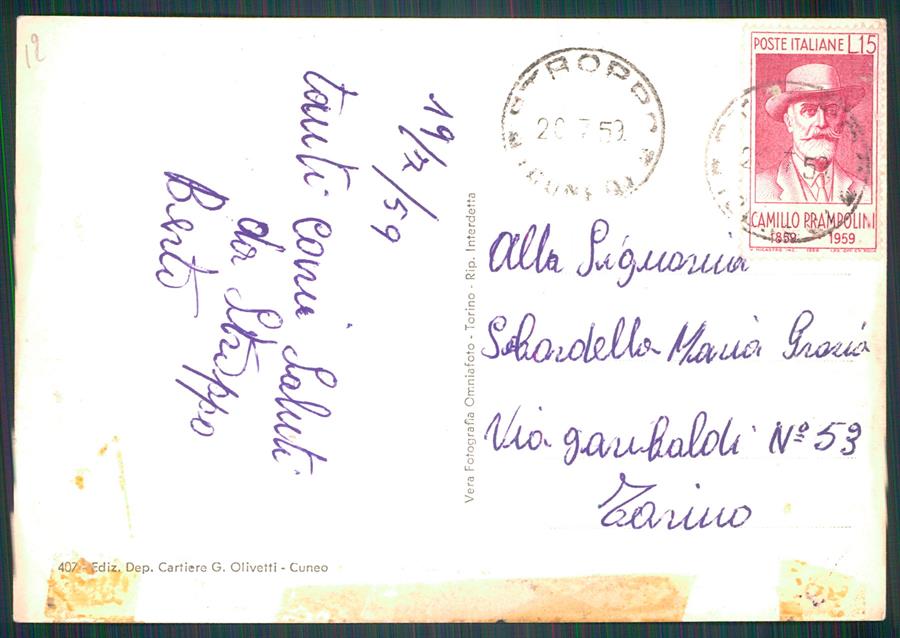 12
19/7/59
tanti cari saluti
da Stroppo
Berto
STROPPO
20.7.59
(CUNEO)
POSTE ITALIANE L15
CAMILLO PRAMPOLINI
1859 1959
Alla Signorina
Sbardella Maria Grazia
Via garibaldi N° 53
Torino
Vera Fotografia Omniafoto - Torino - Rip. Interdetta
407 - Ediz. Dep. Cartiere G. Olivetti - Cuneo